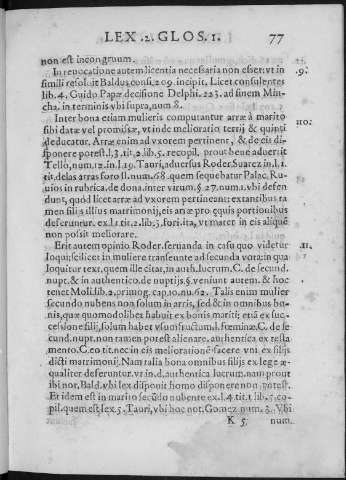 LEX .2. GLOS. 1. 77
non est incongruum.
In reuocatione autem licentia necessaria non est: vt in .9.
simili resoluit Baldus consi. 209. incipit, Licet consulentes
lib. 4. Guido Papæ decisione Delphi. 223. ad finem Min-
cha. in terminis vbi supra, num 8.
Inter bona etiam mulieris computantur arræ à marito .10.
sibi datæ vel promissæ, vt inde melioratio tertij & quinti
deducatur. Arræ enim ad vxorem pertinent, & de eis di-
sponere potest. l. 3. tit. 2. lib. 5. recopil. prout bene aduertit
Tello, num. 12. in l. 19. Tauri, aduersus Roder. Suarez in. l. 1.
tit. de las arras foro ll. num. 68. quem sequebatur Palac. Ru-
uios in rubrica. de dona. inter virum. §. 27. num. 1. vbi defen-
dunt, quòd licet arræ ad vxorem pertineant: extantibus ta
men filijs illius matrimonij, eis arræ pro æquis portionibus
deseruntur. ex. l. 1. tit. 2. lib. 3. fori. ita, vt mater in eis aliquē
non possit meliorare.
Erit autem opinio Roder. seruanda in casu quo videtur .11.
loqui: scilicet in muliere transeunte ad secunda vota: in qua
loquitur text. quem ille citat, in auth. lucrum. C. de secund.
nupt. & in authentico. de nuptijs. §. veniunt autem. & hoc
tenet Moli. lib. 2. primog. cap. 10. nu. 62. Talis enim mulier
secundo nubens non solum in arris, sed & in omnibus bo-
nis, quæ quomodolibet habuit ex bonis mariti; etiā ex suc-
cessione filij, solum habet vsumfructum. l. fœminæ. C. de se
cund. nupt. non tamen potest alienare. authentica ex testa
mento. C. eo tit. nec in eis meliorationē facere vni ex filijs
dicti matrimonij. Nam talia bona omnibus filijs ex lege æ-
qualiter deferuntur. vt in. d. authentica lucrum. nam prout
ibi not. Bald. vbi lex disponit homo disponere non potest.
Et idem est in marito secūdo nubente ex. l. 4. tit. 1. lib. 5. co-
pil. quem est lex. 5. Tauri, vbi hoc not. Gomez num. 3. Vbi
K 5. num.